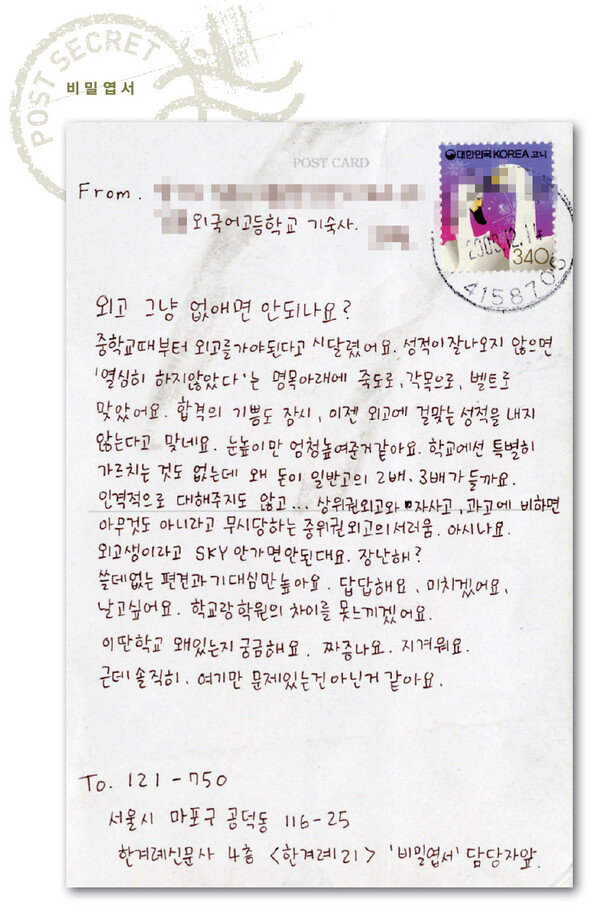 POST SECRET
비밀엽서
POST CARD
대한민국 KOREA 코니
From.
외국어고등학교 기숙사.
340
415870
외고 그냥 없애면 안되나요?
중학교때부터 외고를가야된다고 시달렸어요. 성적이잘나오지 않으면
'열심히 하지않았다'는 명목아래에 죽도로, 각목으로, 벨트로
맞았어요. 합격의 기쁨도 잠시, 이젠 외고에 걸맞는 성적을 내지
않는다고 맞네요. 눈높이만 엄청높여준거같아요. 학교에선 특별히
가르치는 것도 없는데 왜 돈이 일반고의 2배, 3배가 들까요.
인격적으로 대해주지도 않고... 상위권외고와 자사고, 과고에 비하면
아무것도 아니라고 무시당하는 중위권외고의서러움. 아시나요.
외고생이라고 SKY 안가면안된대요. 장난해?
쓸데없는 편견과기대심만높아요. 답답해요, 미치겠어요,
날고싶어요. 학교랑학원의 차이를 못느끼겠어요.
이딴학교 왜있는지 궁금해요. 짜증나요. 지겨워요.
근데솔직히, 여기만 문제있는건아닌거 같아요.
To. 121-750
서울시 마포구 공덕동 116-25
한겨레신문사 4층 <한겨레21> '비밀엽서' 담당자앞.